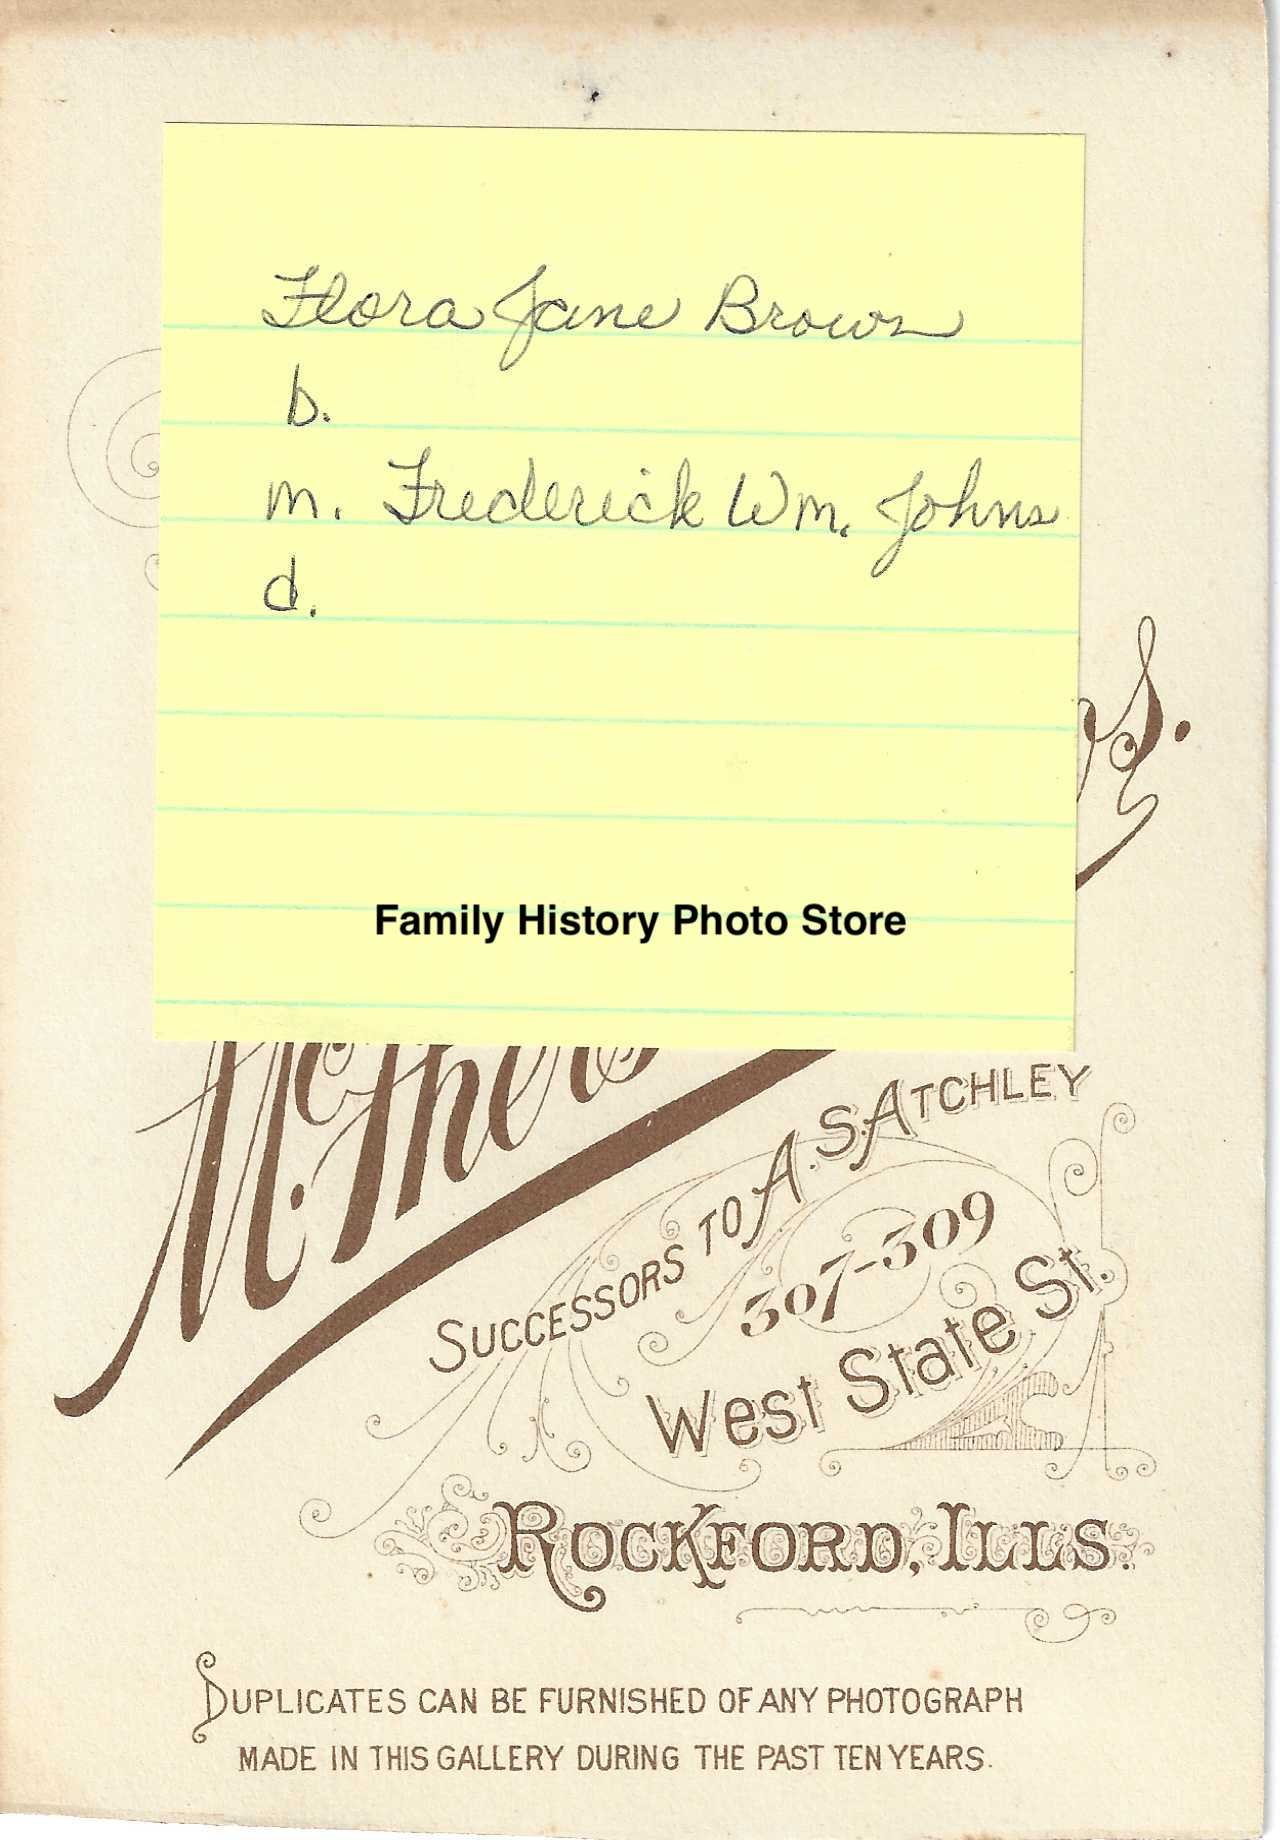 Flora Jane Brown
b.
m. Frederick Wm. Johns
d.
Family History Photo Store
SUCCESSORS TO A. S. ATCHLEY
307-309
West State St.
ROCKFORD, ILLS.
DUPLICATES CAN BE FURNISHED OF ANY PHOTOGRAPH
MADE IN THIS GALLERY DURING THE PAST TEN YEARS.